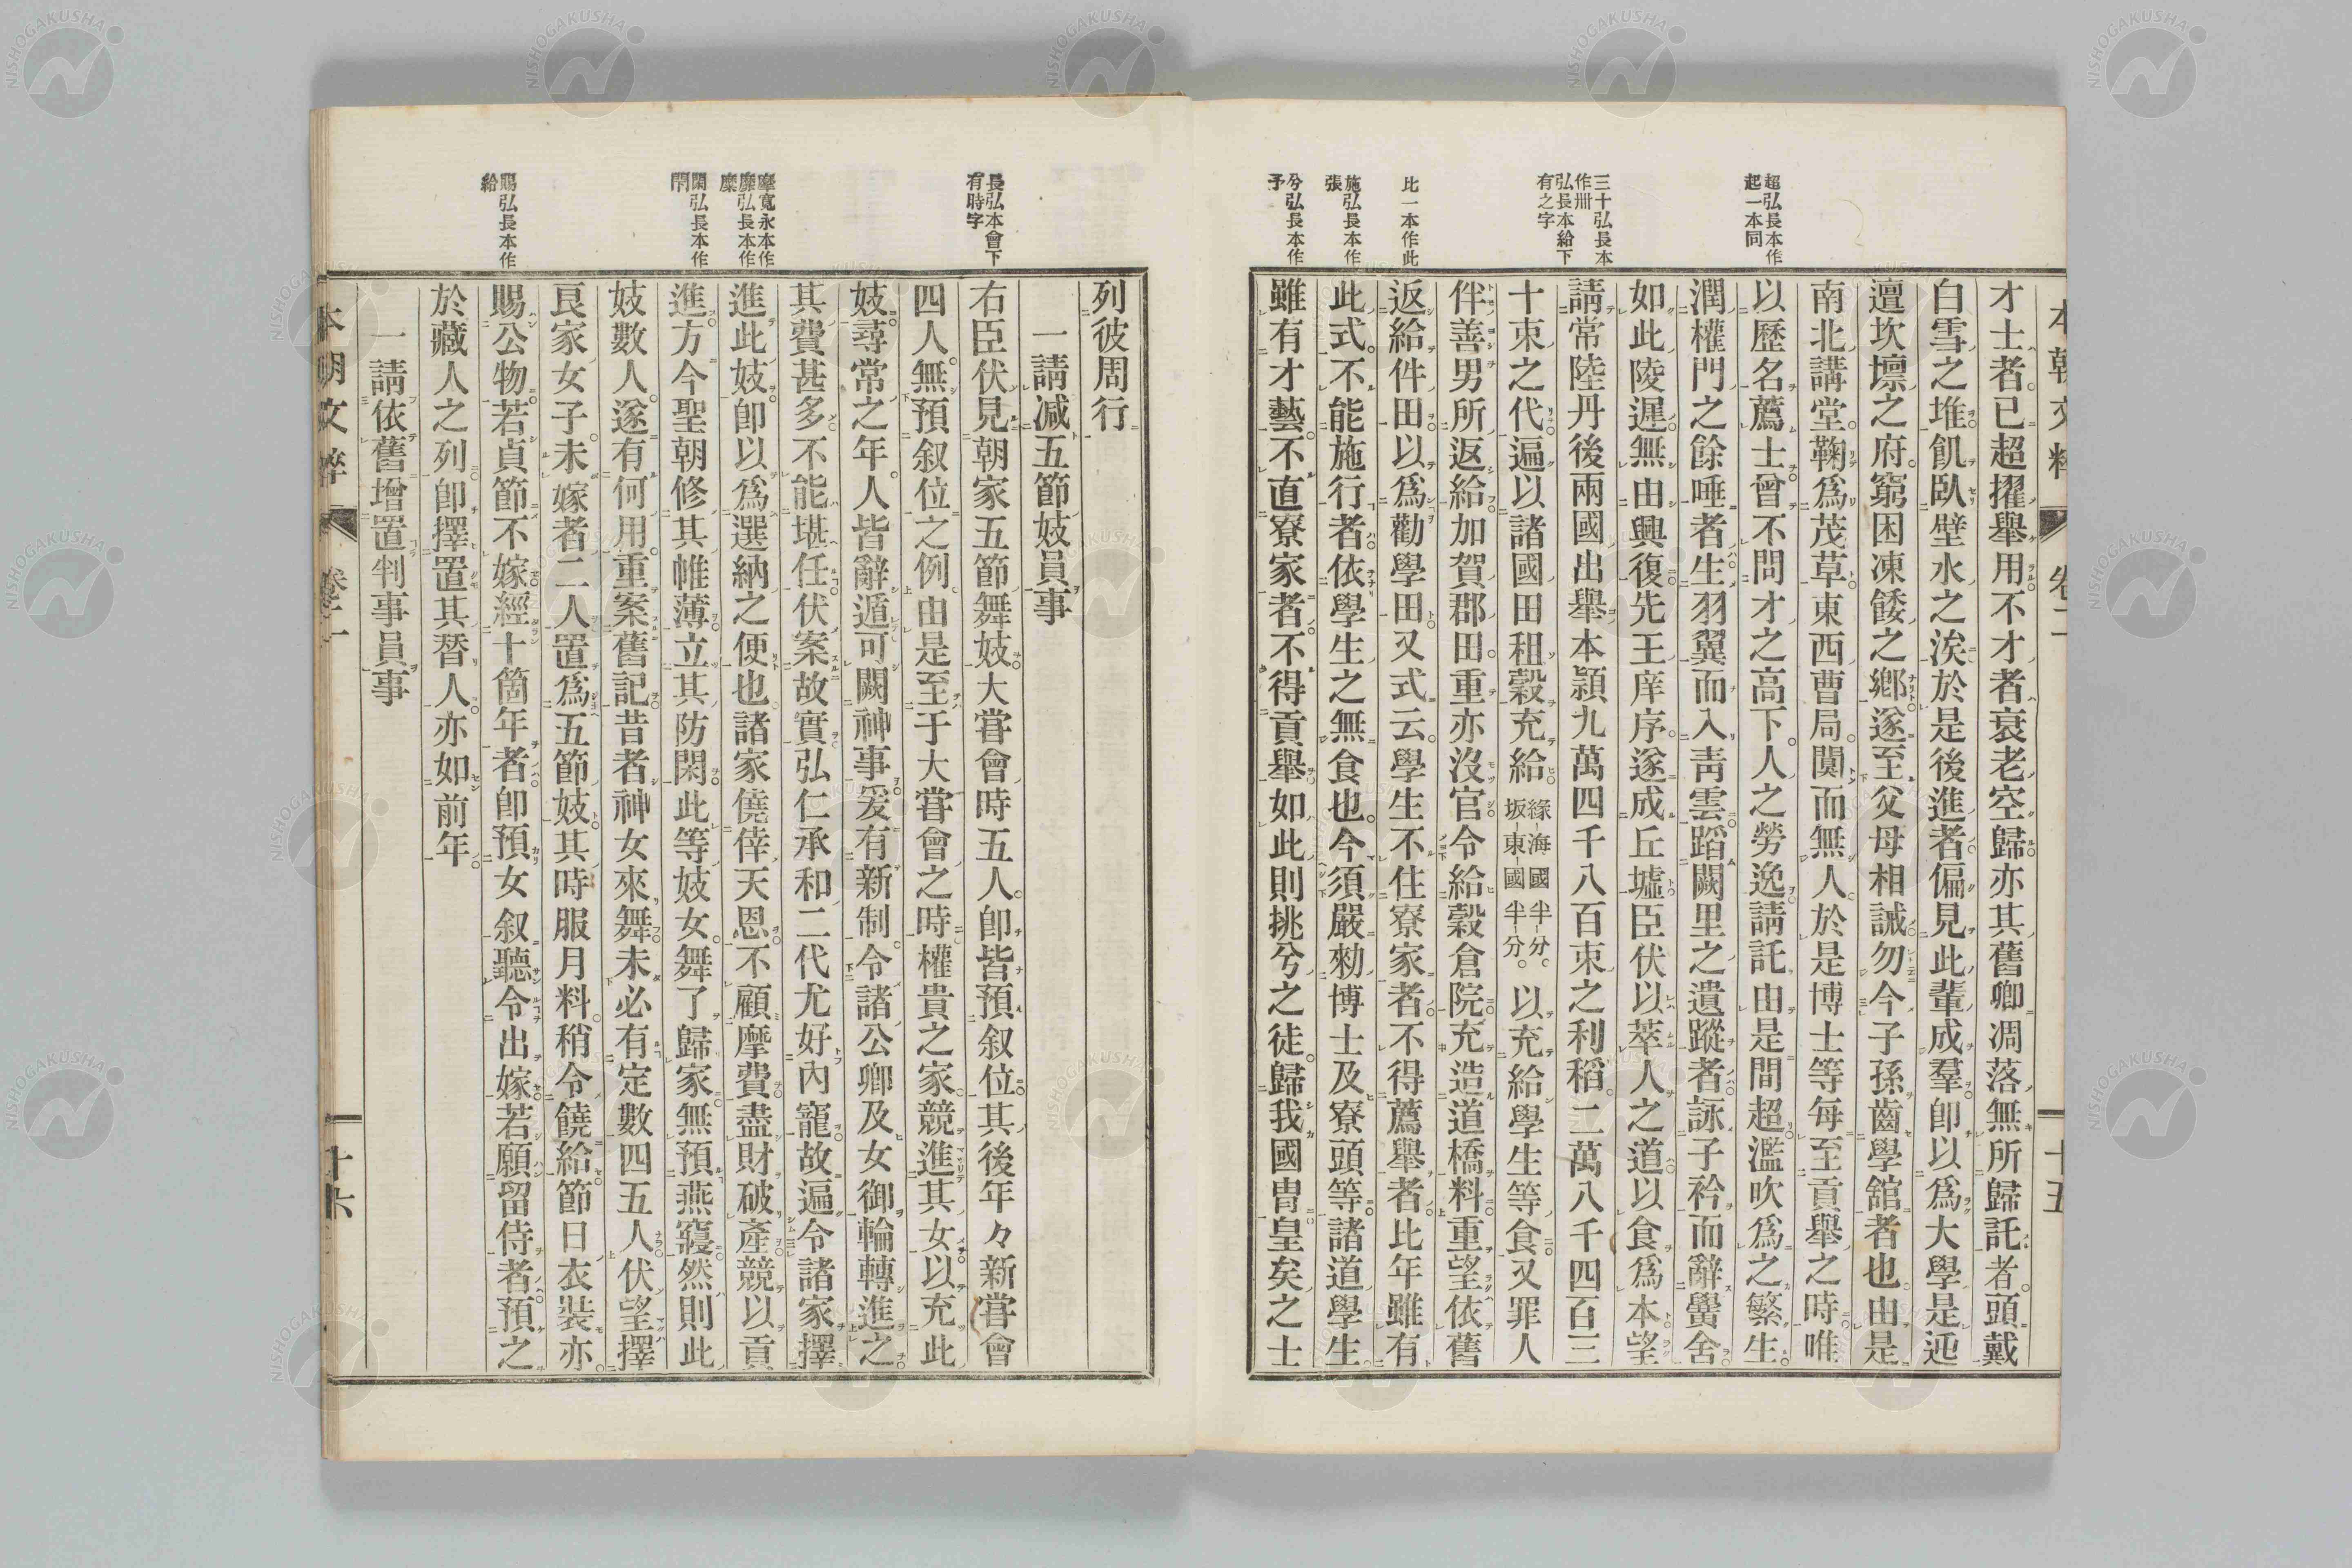 本朝文粹 卷二 十五
超弘長本作
起一本同
三十弘長本
作卅
弘長本給下
有之字
比一本作此
施弘長本作
張
兮弘長本作
予
才士者已超擢舉用不才者衰老空歸亦其舊卿凋落無所歸託者頭戴
白雪之堆飢臥壁水之涘於是後進者偏見此輩成羣卽以爲大學是迍
邅坎壈之府窮困凍餧之鄉遂至父母相誡勿令子孫齒學舘者也由是
南北講堂鞠爲茂草東西曹局闃而無人於是博士等每至貢舉之時唯
以歷名薦士曾不問才之高下人之勞逸請託由是間超濫吹爲之繁生
潤權門之餘唾者生羽翼而入靑雲蹈闕里之遺蹤者詠子衿而辭黌舍
如此陵遲無由興復先王庠序遂成丘墟臣伏以萃人之道以食爲本望
請常陸丹後兩國出舉本頴九萬四千八百束之利稻二萬八千四百三
十束之代遍以諸國田租穀充給緣海國半分。坂東國半分。以充給學生等食又罪人
伴善男所返給加賀郡田重亦沒官令給穀倉院充造道橋料重望依舊
返給件田以爲勸學田又式云學生不住寮家者不得薦舉者比年雖有
此式不能施行者依學生之無食也今須嚴勑博士及寮頭等諸道學生
雖有才藝不直寮家者不得貢舉如此則挑兮之徒歸我國冑皇矣之士
長弘本會下
有時字
摩寬永本作
靡弘長本作
糜
閑弘長本作
閇
賜弘長本作
給
列彼周行
一請減五節妓員事
右臣伏見朝家五節舞妓大甞會時五人卽皆預叙位其後年々新甞會
四人無預叙位之例由是至于大甞會之時權貴之家競進其女以充此
妓尋常之年人皆辭遁可闕神事爰有新制令諸公卿及女御輪轉進之
其費甚多不能堪任伏案故實弘仁承和二代尤好內寵故遍令諸家擇
進此妓卽以爲選納之便也諸家僥倖天恩不顧摩費盡財破產競以貢
進方今聖朝修其帷薄立其防閑此等妓女舞了歸家無預燕寢然則此
妓數人遂有何用重案舊記昔者神女來舞未必有定數四五人伏望擇
良家女子未嫁者二人置爲五節妓其時服月料稍令饒給節日衣裝亦
賜公物若貞節不嫁經十箇年者卽預女叙聽令出嫁若願留侍者預之
於藏人之列卽擇置其替人亦如前年
一請依舊增置判事員事
本朝文粹 卷二 十六